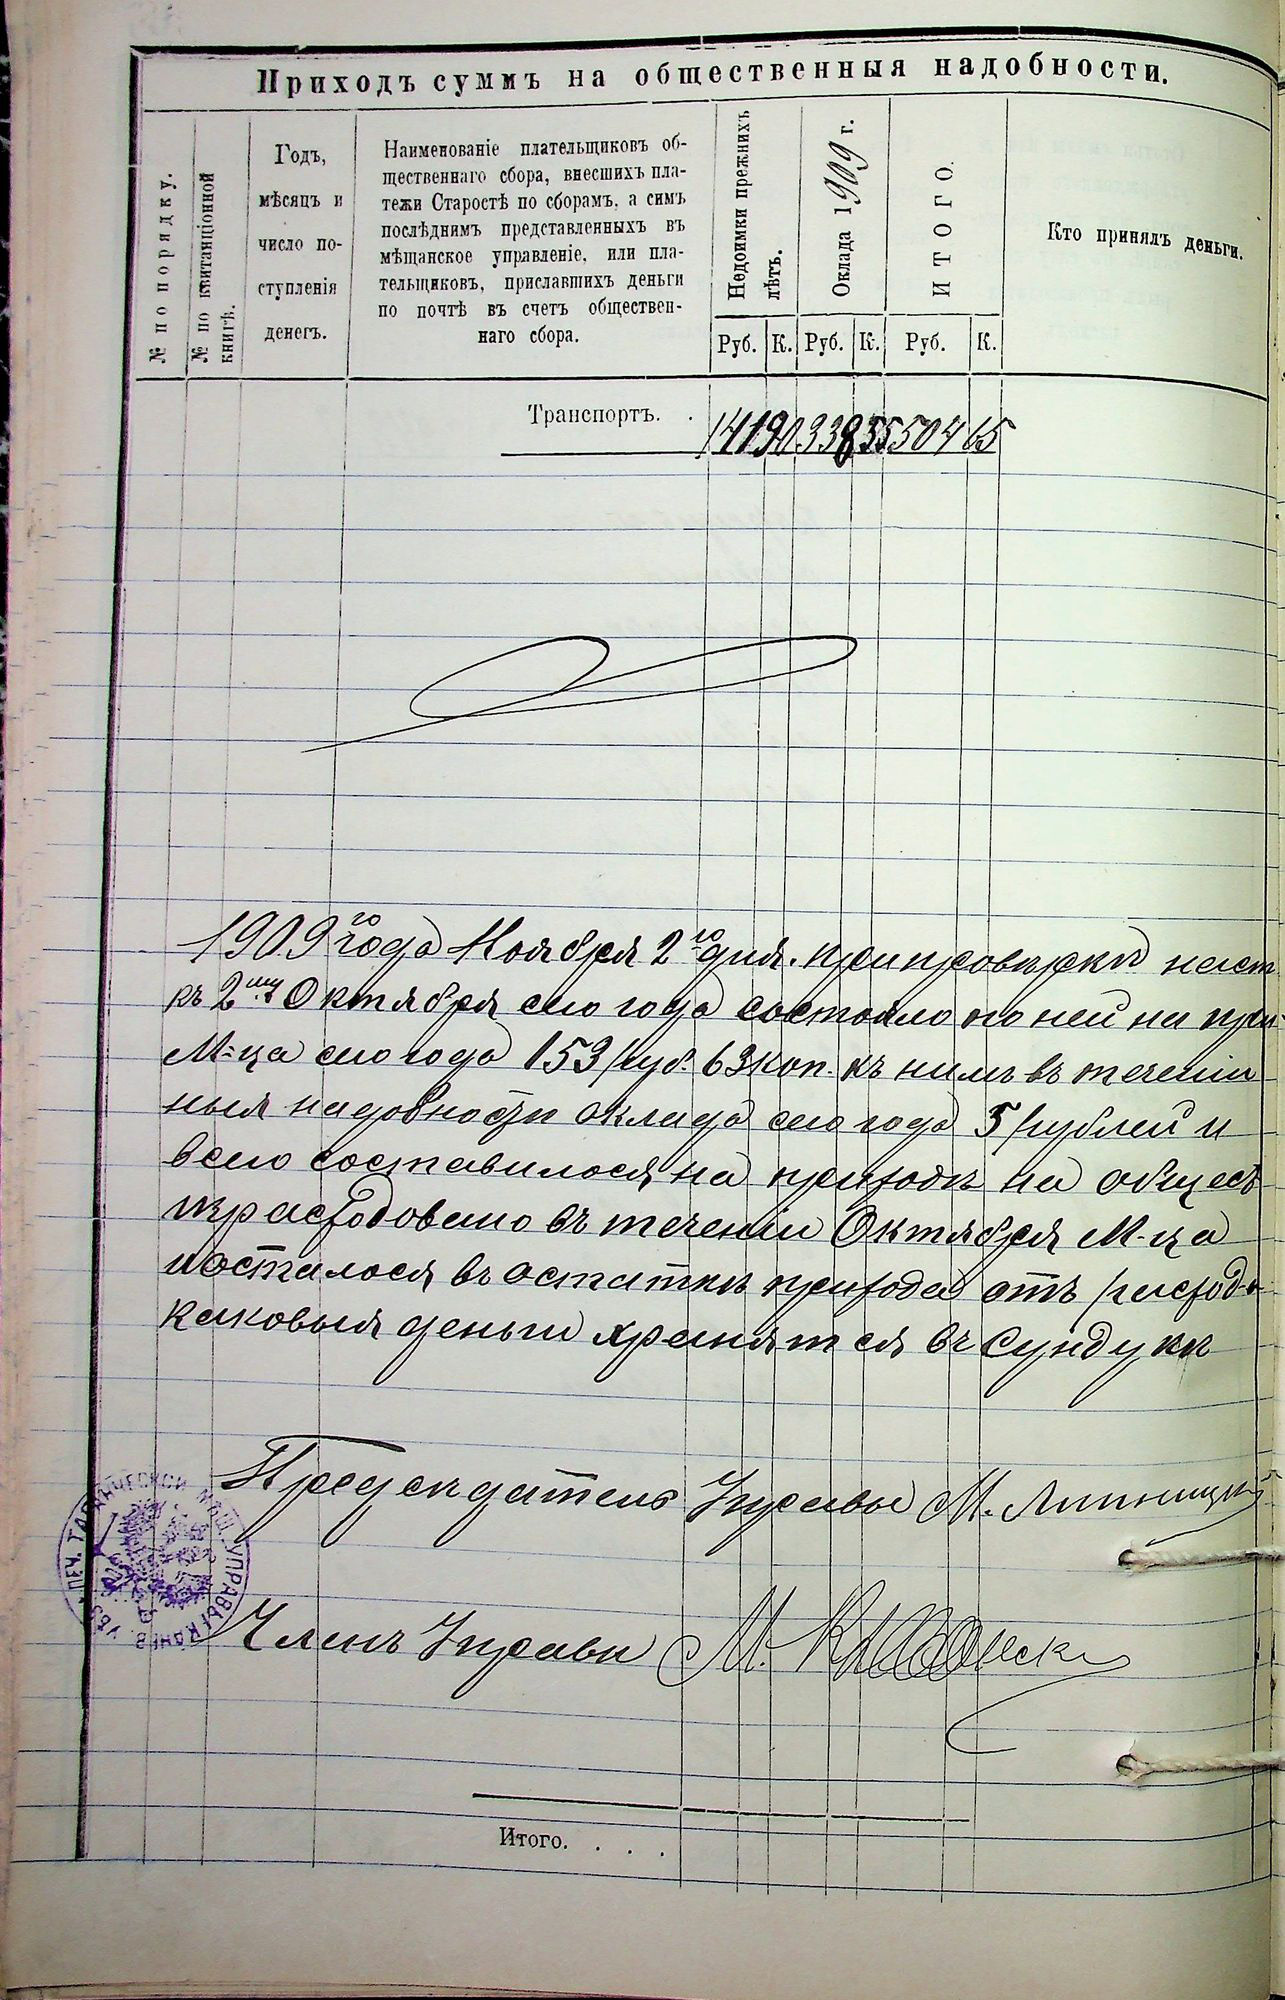 Приходъ суммъ на общественныя надобности.
№ по порядку.
№ по квитанціонной
книгѣ.
Годъ,
мѣсяцъ и
число по-
ступленія
денегъ.
Наименованіе плательщиковъ об-
щественнаго сбора, внесшихъ пла-
тежи Старостѣ по сборамъ, а симъ
послѣднимъ представленныхъ въ
мѣщанское управленіе, или пла-
тельщиковъ, приславшихъ деньги
по почтѣ въ счетъ обществен-
наго сбора.
Недоимки прежнихъ
лѣтъ.
Оклада 1909 г.
ИТОГО.
Кто принялъ деньги.
Руб. К. Руб. К. Руб. К.
Транспортъ. . 141 90 338 55 504 65
1909го года Ноября 2го дня. При провѣрки наст
къ 2му Октября сего года состояло по ней на при-
М-ца сего года 153 руб. 63 коп. къ нимъ въ теченіи
ныя надобности оклада сего года 5 рублей и
всего составилося на приходѣ на общест
израсходовано въ теченіи Октября М-ца
и осталося въ остаткѣ прихода отъ расход-
каковыя деньги хранятся въ сундукѣ
Предсѣдатель Управы М.
Членъ Управы М.
Итого. . . .